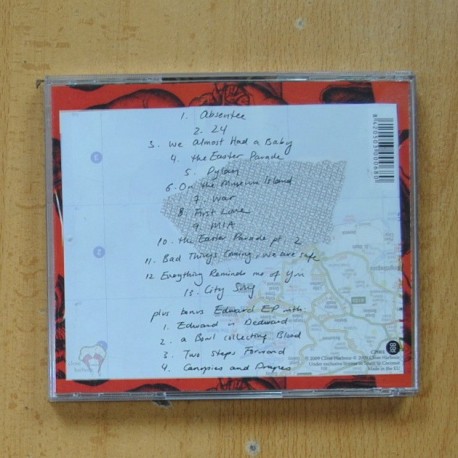 1. Absentee
2. 24
3. We Almost Had a Baby
4. the Easter Parade
5. Dylan
6. On the Museum Island
7. War
8 First Love
9. MIA
10. the Easter Parade pt. 2
11. Bad Things Coming, we are safe
12 Everything Reminds me of You
13. City Song
plus bonus Edward EP with
1. Edward is Dedward
2. a Bowl collecting Blood
3. Two Steps Forward
4. Canopies and Drapes
Made in the EU